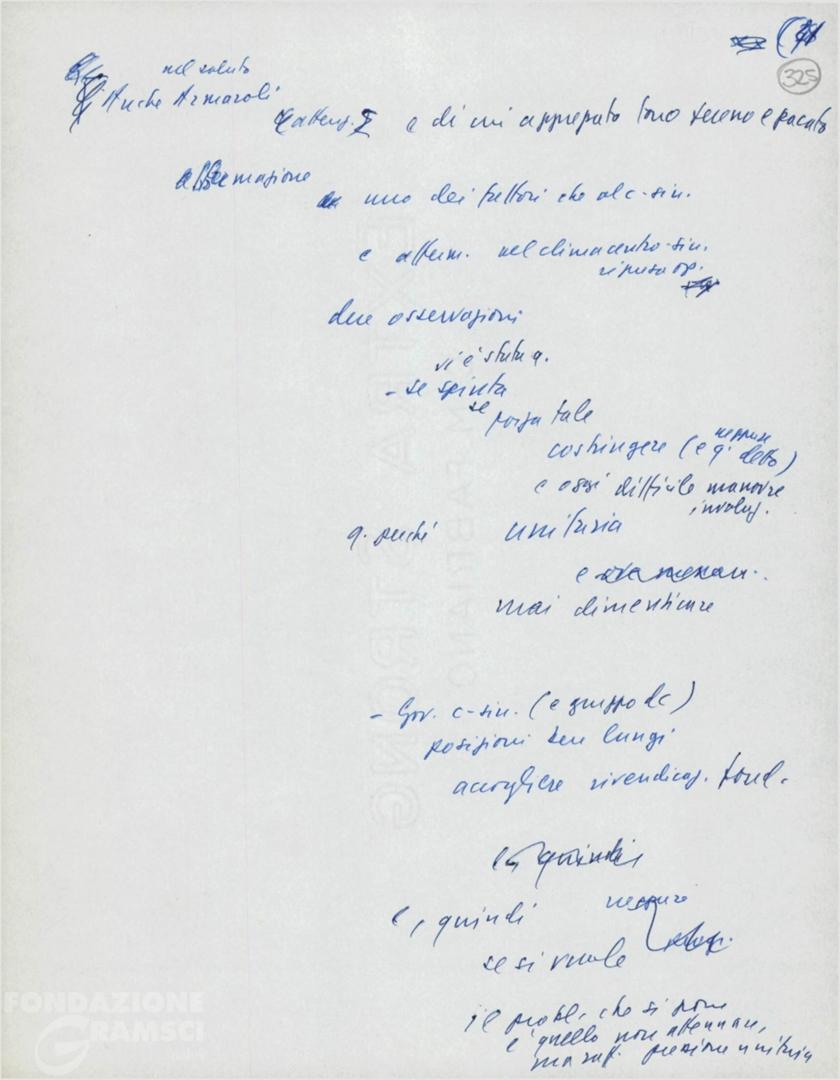 325
nel saluto
Anche Armaroli
e di cui apprezzato tono sereno e pacato
affermazione
uno dei fattori che al c-sin.
e afferm. nel clima centro-sin.
due osservazioni
vi è stata q.
- se spinta
se
forza tale
neppure
costringere (e q. detto)
e oggi difficile manovre
involuz.
q. perché unitaria
e
mai dimenticare
- Gov. c-sin. (e gruppo dc)
posizioni ben lungi
accogliere rivendicaz. fond.
quindi
e, quindi neppure
se si vuole
il probl. che si pone
è quello non attenuare,
ma raff. pressione unitaria
FONDAZIONE
GRAMSCI
EXTRA STRONG
FABRIANO